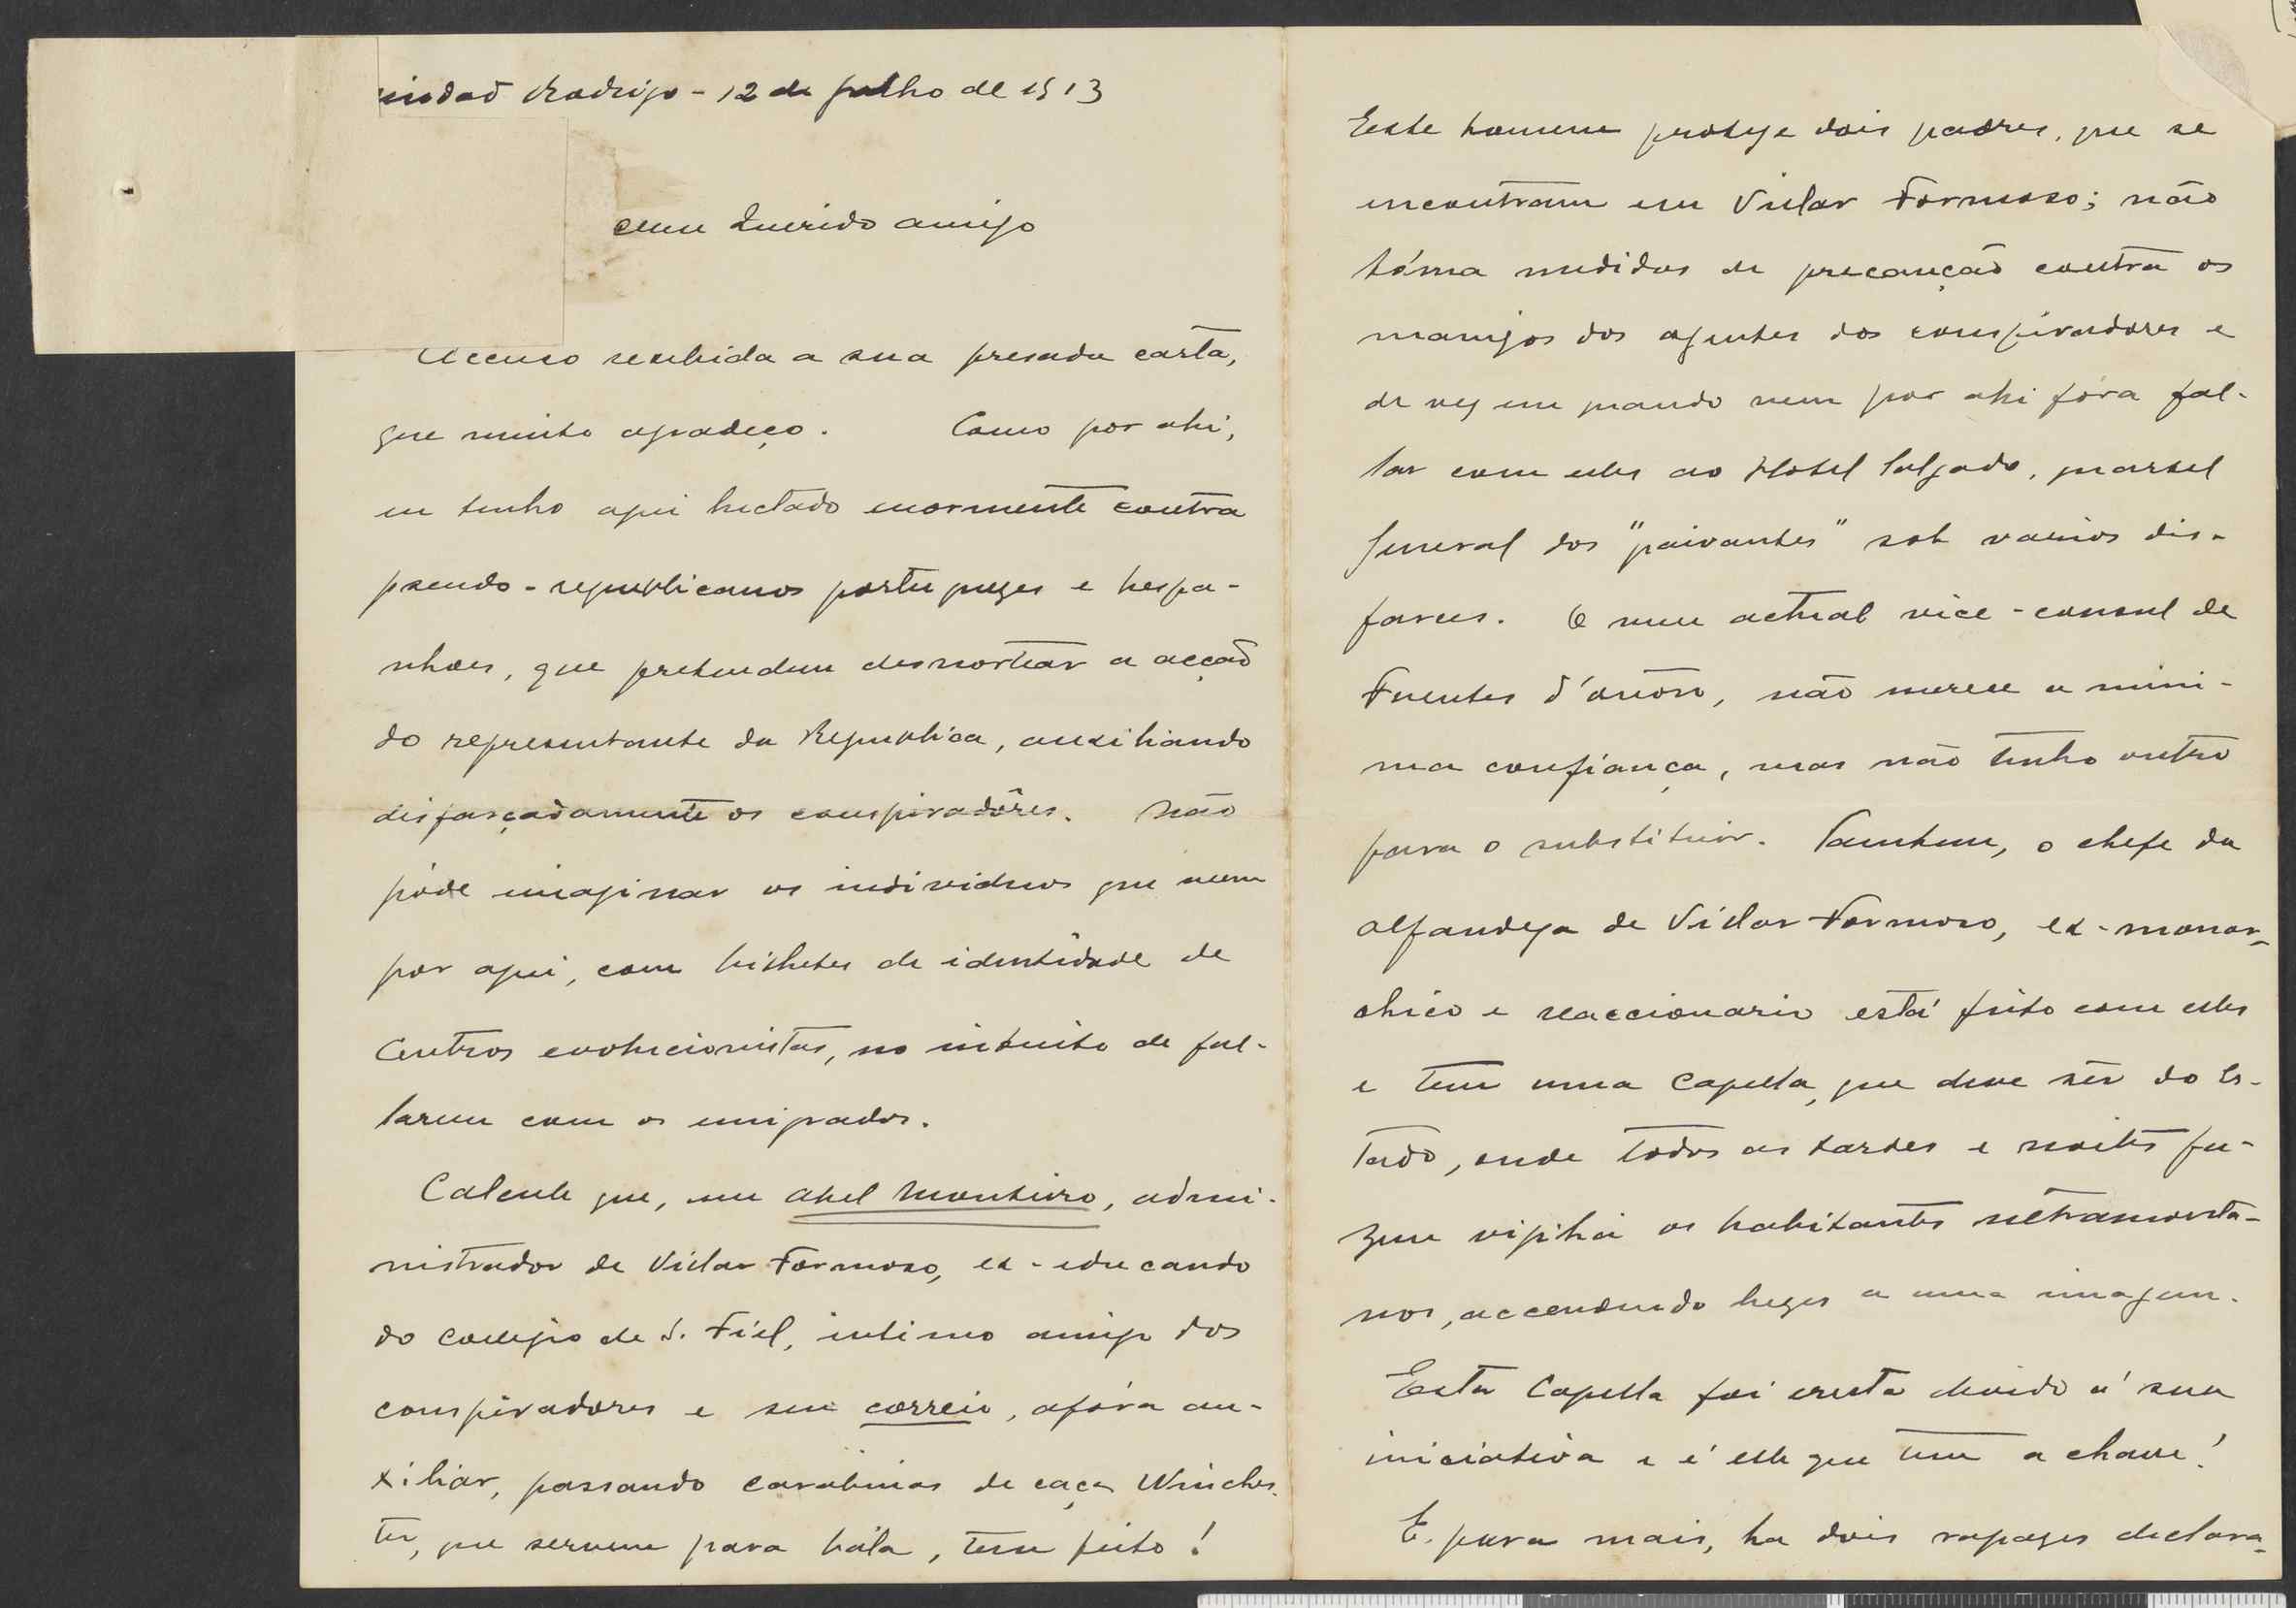 iudad Rodrigo - 12 de julho de 1913
Meu Querido amigo
Accuso recebida a sua presada carta,
que muito agradeço. Como por ahi,
eu tenho aqui luctado enormente contra
pseudo-republicanos portuguezes e hespa-
nhoes, que pretendem desnortear a acção
do representante da Republica, auxiliando
disfarçadamente os conspiradôres. Não
póde imaginar os individuos que veem
por aqui, com bilhetes de identidade de
Centros evolucionistas, no intuito de fal-
larem com os emigrados.
Calcule que, um Abel Monteiro, admi-
nistrador de Villar Formoso, ex-educando
do collegio de S. Fiel, intimo amigo dos
conspiradores e seu correio, afóra au-
xiliar, passando carabinas de caça Winches-
ter, que servem para bála, tem feito!
Este homem protege dois padres, que se
encontram em Villar Formoso; não
tóma medidas de precaução contra os
manejos dos agentes dos conspiradores e
de vez em quando vem por ahi fóra fal-
lar com elles ao Hotel Salgado, quartel
general dos "paivantes" sob varios dis-
farces. O meu actual vice-consul de
Fuentes d'Oñoro, não merece a mini-
ma confiança, mas não tenho outro
para o substituir. Tambem, o chefe da
alfandega de Villar Formoso, ex-monar-
chico e reaccionario está feito com elles
e tem uma Capella, que deve sêr do Es-
tado, onde todas as tardes e noites fa-
zem vigilia os habitantes ultramonta-
nos, accendendo luzes a uma imagem.
Esta Capella foi erecta devido á sua
iniciativa e é elle que tem a chave!
E. para mais, ha dois rapazes declara-